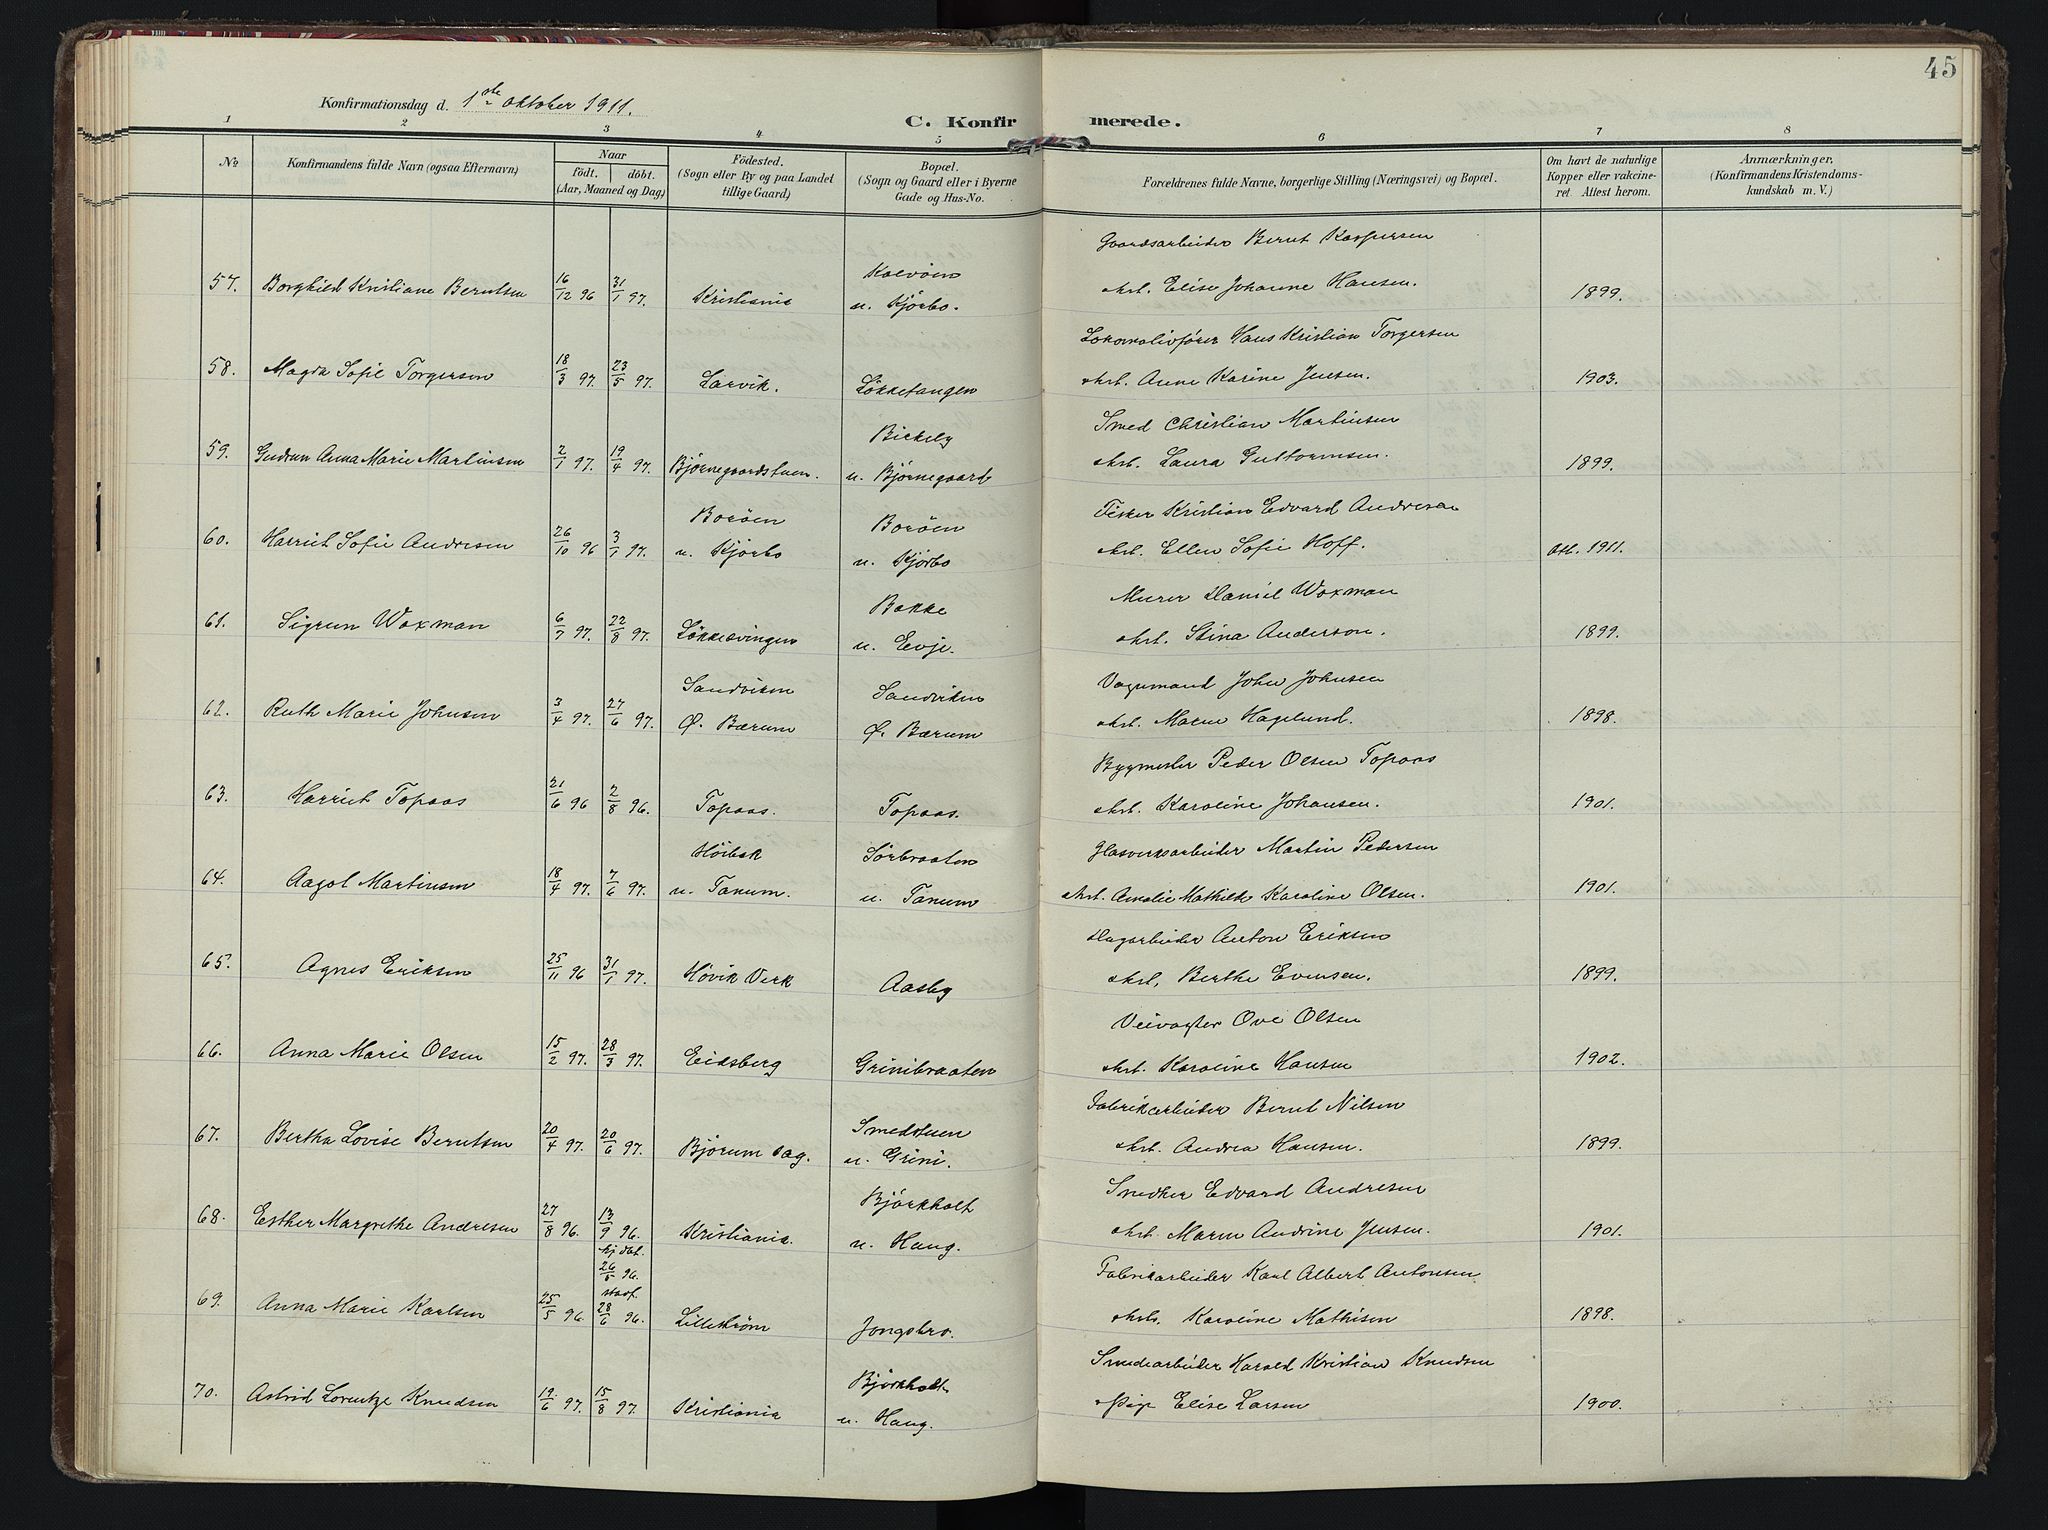 45
Konfirmationsdag d. 1ste oktober 1911.
C. Konfirmerede.
1 2 3 4 5 6 7 8
No
Konfirmandens fulde Navn (ogsaa Efternavn)
Naar
födt. döbt.
(Aar, Maaned og Dag)
Födested.
(Sogn eller By og paa Landet
tillige Gaard)
Bopæl.
(Sogn og Gaard eller i Byerne
Gade og Hus-No.
Forældrenes fulde Navne, borgerlige Stilling (Næringsvei) og Bopæl.
Om havt de naturlige
Kopper eller vakcine-
ret. Attest herom.
Anmærkninger.
(Konfirmandens Kristendoms-
kundskab m. V.)
Gaardsarbeider Bernt Kaspersen
57. Borghild Kristiane Berntsen 16/12 96 31/1 97. Kristiania Kalvöen
u. Kjörbo. Elise Johanne Hansen. 1899.
Lokomotivförer Hans Kristian Torgersen
58. Magda Sofie Torgersen 18/3 97. 23/5 97. Larvik. Løkketangen Anne Karine Jensen. 1903.
Smed Christian Martinsen
59. Gudrun Anna Marie Martinsen 2/1 97. 19/4 97. Bjørnegaardstuen. Bickely
u. Bjørnegaard Laura Guttormsen. 1899.
Fisker Kristian Edvard Andresen
60. Harriet Sofie Andresen 26/10 96 3/1 97. Borøen
u. Kjørbo Borøen
u. Kjørbo Ellen Sofie Hoff. Att. 1911.
Murer Daniel Woxman
61. Sigrun Woxman 6/7 97. 22/8 97. Løkkesvingen Bakke
u. Evje. Stina Anderson. 1899.
Vognmand John Johnsen
62. Ruth Marie Johnsen 3/4 97. 27/6 97. Sandviken
Ø. Bærum Sandviken
Ø. Bærum Maren Hagelund. 1898.
Bygmester Peder Olsen Topaas
63. Harriet Topaas 21/6 96 2/8 96. Topaas. Topaas. Karoline Johansen. 1901.
Glasverksarbeider Martin Pedersen
64. Aagot Martinsen 18/4 97. 7/6 97. Høibak
u. Tanum. Sørbraaten
u. Tanum Amalie Mathilde Karoline Olsen. 1901.
Dagarbeider Anton Eriksen
65. Agnes Eriksen 25/11 96 31/1 97. Høvik Verk Aasby Berthe Evensen. 1899.
Veivogter Ove Olsen
66. Anna Marie Olsen 15/2 97. 28/3 97. Eidsberg Grinibraaten Karoline Hansen 1902.
Fabrikarbeider Bernt Nilsen
67. Bertha Lovise Berntsen 20/4 97. 20/6 97. Bjørum sag. Smedstuen
u. Grini. Andrea Hansen. 1899.
Snedker Edvard Andresen
68. Esther Margrethe Andresen 27/8 96. 13/9 96. Kristiania. Bjørkholt
u. Haug. Maren Andrine Jensen. 1901.
Fabrikarbeider Karl Albert Antonsen
69. Anna Marie Karlsen 25/5 96. hj.døbt.
26/5 96.
stadf.
28/6 96. Lillestrøm Jongsbro. Karoline Mathisen 1898.
Smedearbeider Harald Kristian Knudsen
70. Astrid Lorentze Knudsen 19/6 97. 15/8 97. Kristiania Bjørkholt
u. Haug. Pige Elise Larsen 1900.